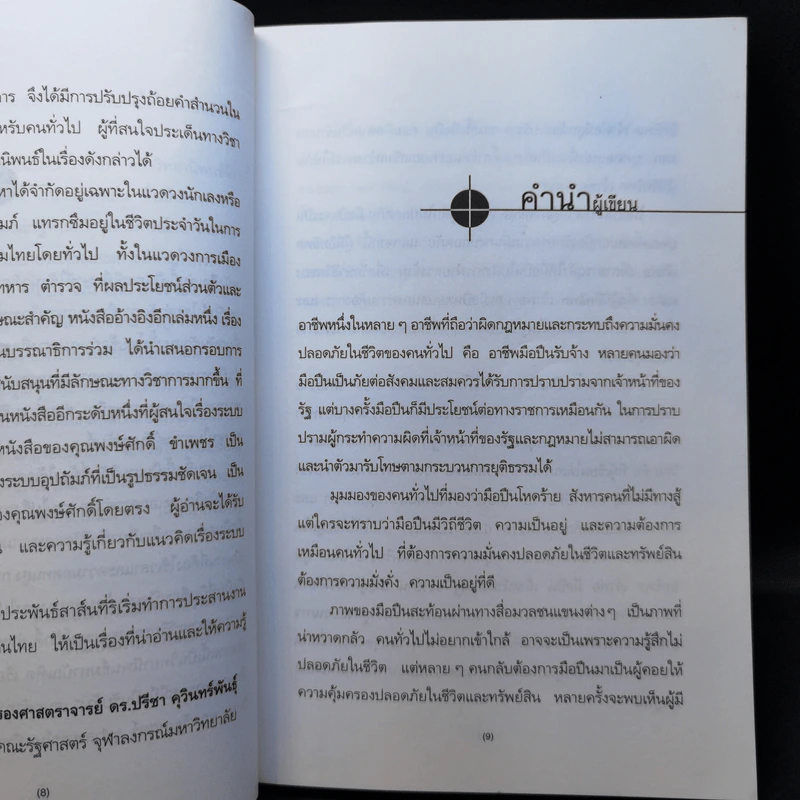 าร จึงได้มีการปรับปรุงถ้อยคำสำนวนใน
หรับคนทั่วไป ผู้ที่สนใจประเด็นทางวิชา
นิพนธ์ในเรื่องดังกล่าวได้
หาได้จำกัดอยู่เฉพาะในแวดวงนักเลงหรือ
มภ์ แทรกซึมอยู่ในชีวิตประจำวันในการ
มไทยโดยทั่วไป ทั้งในแวดวงการเมือง
ทหาร ตำรวจ ที่ผลประโยชน์ส่วนตัวและ
าษณะสำคัญ หนังสืออ้างอิงอีกเล่มหนึ่ง เรื่อง
นบรรณาธิการร่วม ได้นำเสนอกรอบการ
นับสนุนที่มีลักษณะทางวิชาการมากขึ้น ที่
นหนังสืออีกระดับหนึ่งที่ผู้สนใจเรื่องระบบ
หนังสือของคุณพงษ์ศักดิ์ ขำเพชร เป็น
งระบบอุปถัมภ์ที่เป็นรูปธรรมชัดเจน เป็น
องคุณพงษ์ศักดิ์โดยตรง ผู้อ่านจะได้รับ
และความรู้เกี่ยวกับแนวคิดเรื่องระบบ
ประพันธ์สาส์นที่ริเริ่มทำการประสานงาน
นไทย ให้เป็นเรื่องที่น่าอ่านและให้ความรู้
รองศาสตราจารย์ ดร.ปรีชา คุวินทร์พันธุ์
คณะรัฐศาสตร์ จุฬาลงกรณ์มหาวิทยาลัย
(8)
คำนำผู้เขียน
อาชีพหนึ่งในหลาย ๆ อาชีพที่ถือว่าผิดกฎหมายและกระทบถึงความมั่นคง
ปลอดภัยในชีวิตของคนทั่วไป คือ อาชีพมือปืนรับจ้าง หลายคนมองว่า
มือปืนเป็นภัยต่อสังคมและสมควรได้รับการปราบปรามจากเจ้าหน้าที่ของ
รัฐ แต่บางครั้งมือปืนก็มีประโยชน์ต่อทางราชการเหมือนกัน ในการปราบ
ปรามผู้กระทำความผิดที่เจ้าหน้าที่ของรัฐและกฎหมายไม่สามารถเอาผิด
และนำตัวมารับโทษตามกระบวนการยุติธรรมได้
มุมมองของคนทั่วไปที่มองว่ามือปืนโหดร้าย สังหารคนที่ไม่มีทางสู้
แต่ใครจะทราบว่ามือปืนมีวิถีชีวิต ความเป็นอยู่ และความต้องการ
เหมือนคนทั่วไป ที่ต้องการความมั่นคงปลอดภัยในชีวิตและทรัพย์สิน
ต้องการความมั่งคั่ง ความเป็นอยู่ที่ดี
ภาพของมือปืนสะท้อนผ่านทางสื่อมวลชนแขนงต่างๆ เป็นภาพที่
น่าหวาดกลัว คนทั่วไปไม่อยากเข้าใกล้ อาจจะเป็นเพราะความรู้สึกไม่
ปลอดภัยในชีวิต แต่หลาย ๆ คนกลับต้องการมือปืนมาเป็นผู้คอยให้
ความคุ้มครองปลอดภัยในชีวิตและทรัพย์สิน หลายครั้งจะพบเห็นผู้มี
(9)